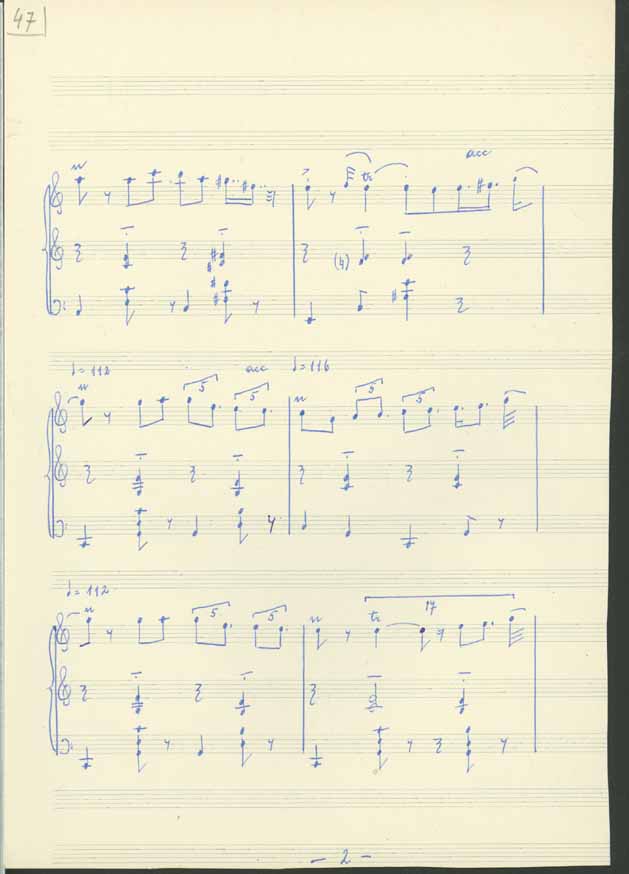 47
acc
tr
(4)
♩=112 acc ♩=116
5 5 5 5
♩=112
5 5 17
tr
- 2 -